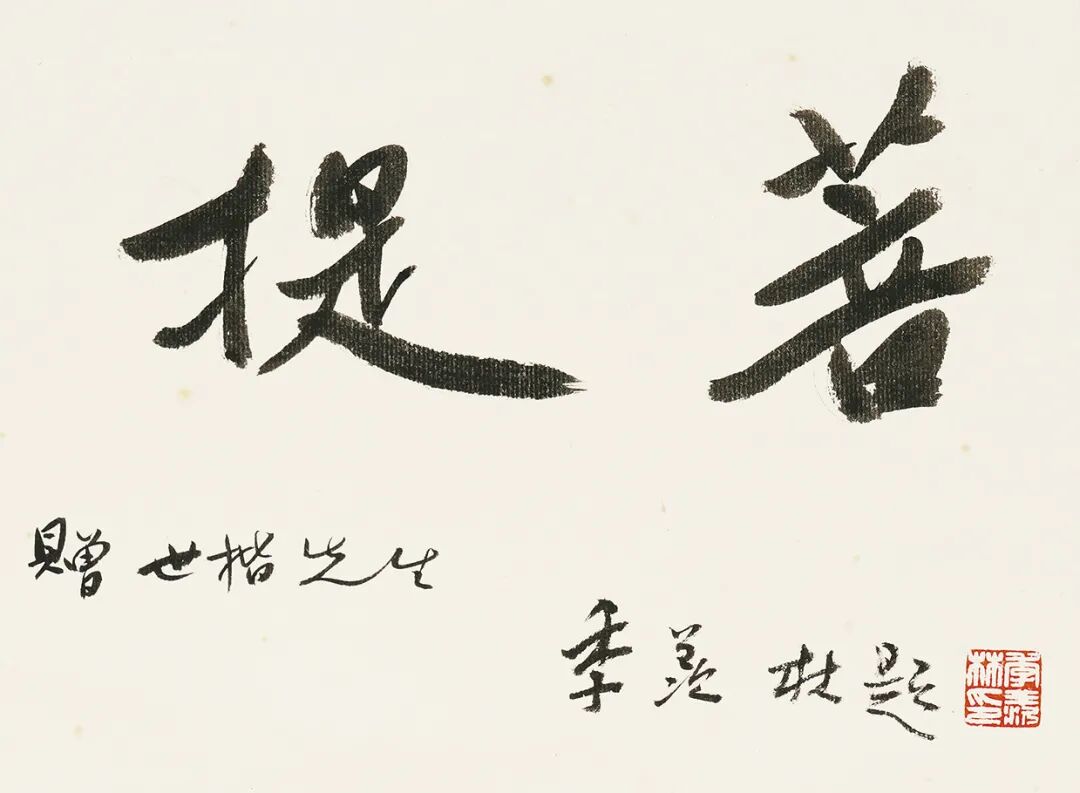 菩提
贈世楷先生
季羡林题
季羡林印